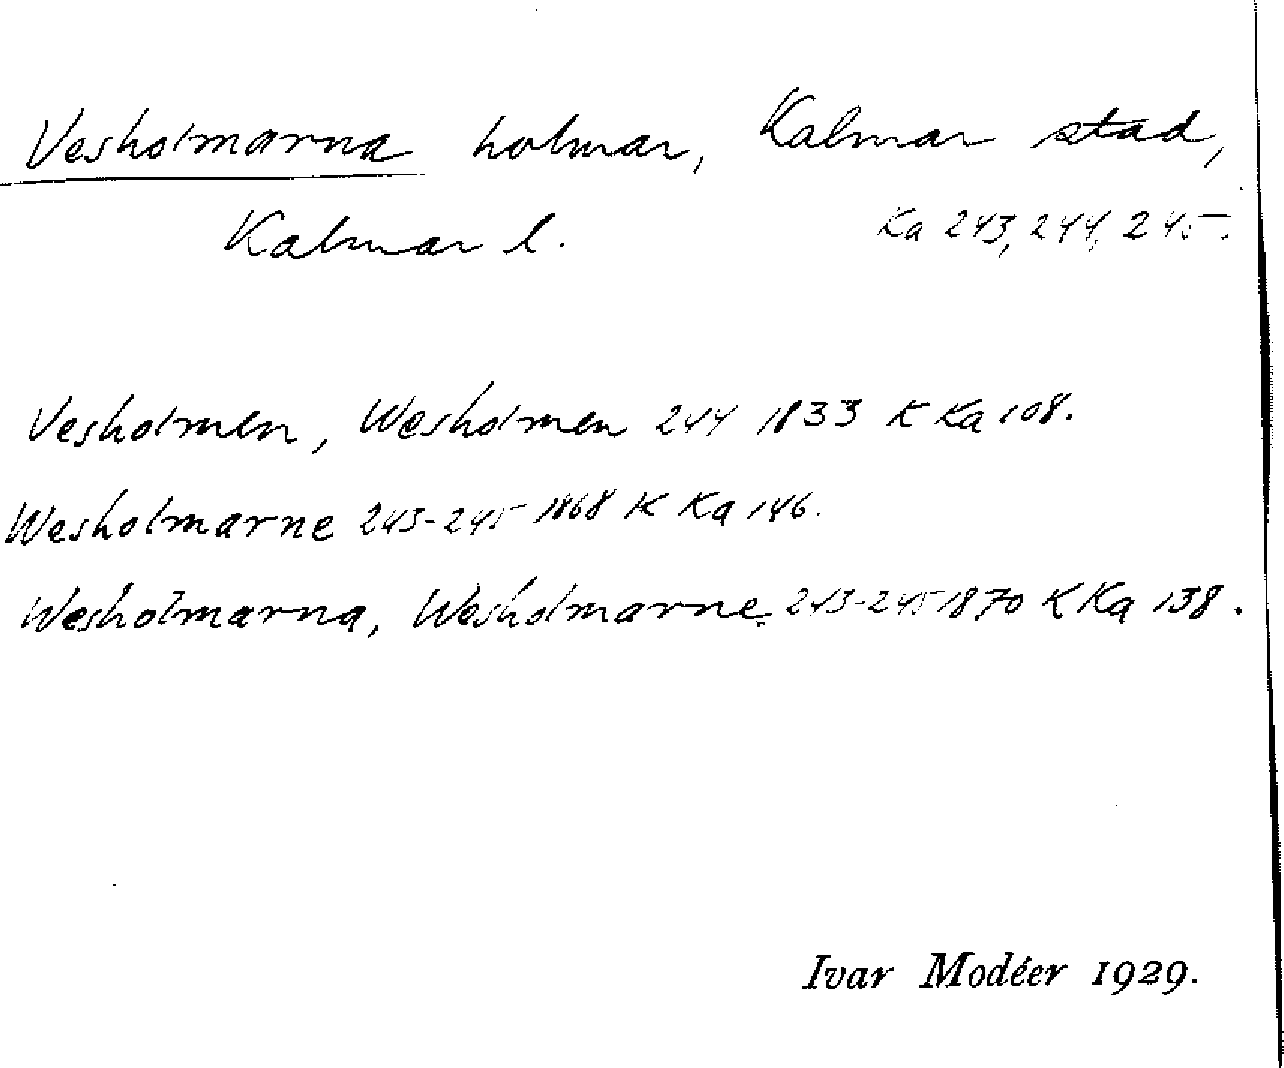 Vesholmarna holmar, Kalmar stad,
Kalmar l. Ka 243, 244, 245.
Vesholmen, Wesholmen 244 1833 K Ka 108.
Wesholmarne 243-245 1868 K Ka 146.
Wesholmarna, Wesholmarne 243-245 1870 K Ka 138.
Ivar Modéer 1929.